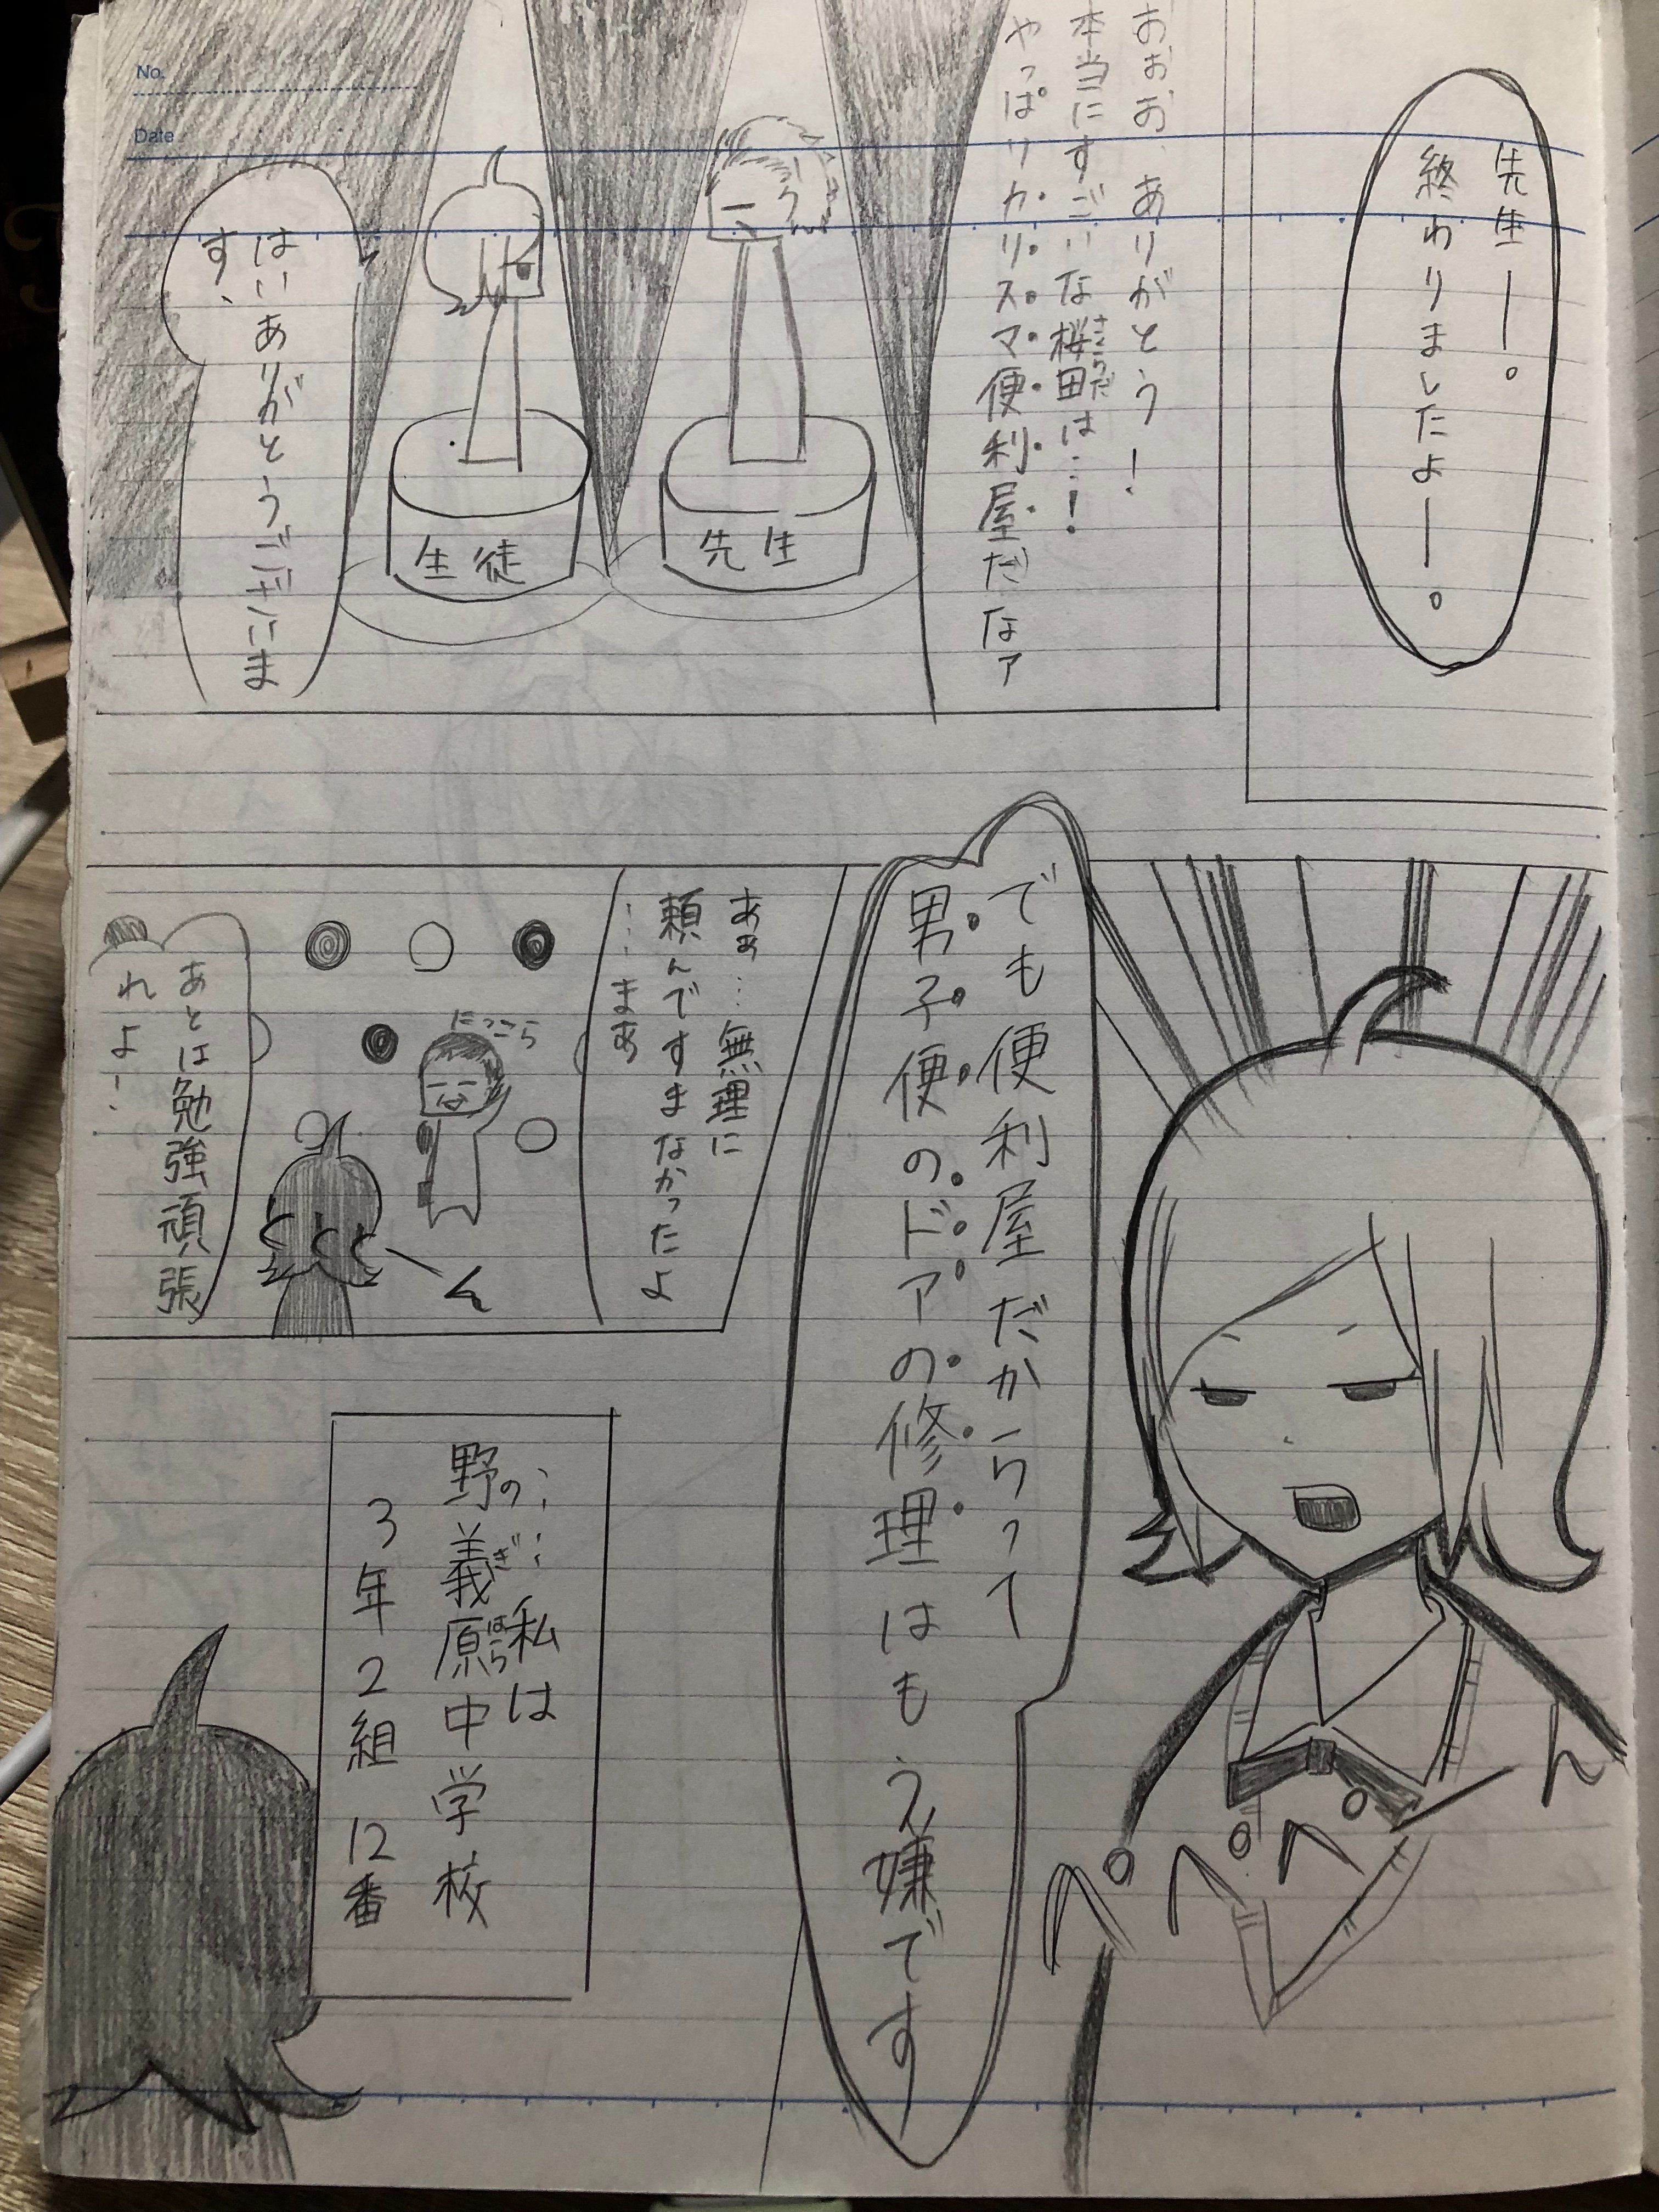 No.
Date
先生ーー。
終わりましたよーー。
おぉお、ありがとう!
本当にすごいな桜田は…!
さくらだ
やっぱりカリスマ便利屋だなァ
先生
生徒
はいありがとうございま
す、
でも便利屋だからって
男子便のドアの修理はもう嫌です
へへへ
ん
ああ…無理に
頼んですまなかったよ
……まあ
にっこら
あとは勉強頑張
れよ!
……私は
野義原中学校
のぎはら
3年2組 12番